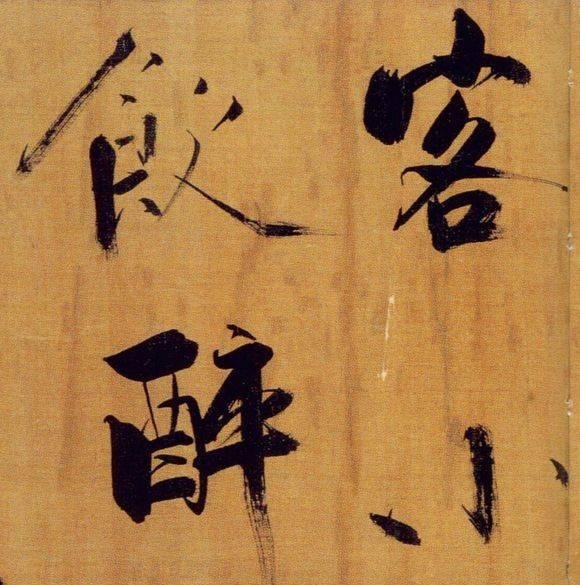 客小
飲醉